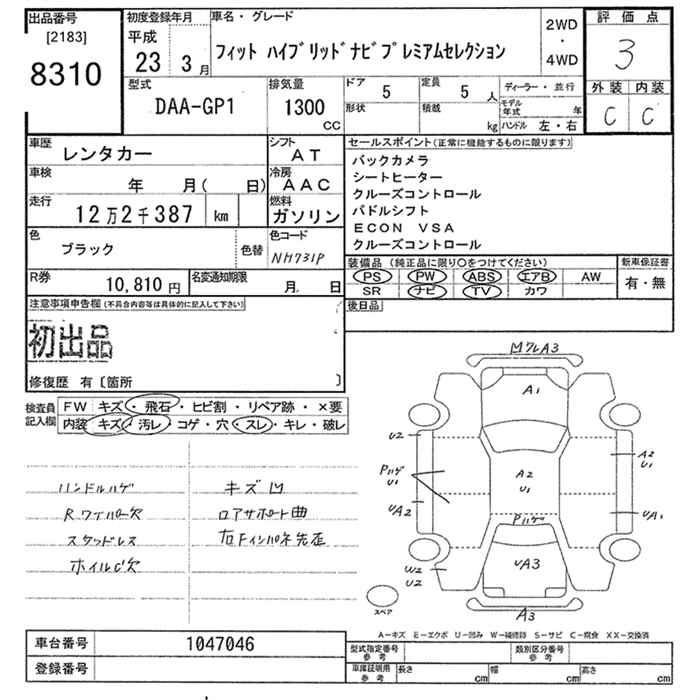 出品番号
[2183]
8310
初度登録年月
平成
23 3月
車名・グレード
フィット ハイブリッドナビプレミアムセレクション
2WD
・
4WD
評価点
3
外装 内装
C C
型式
DAA-GP1
排気量
1300
CC
ドア
5
定員
5 人
形状
積載
kg
ディーラー・並行
モデル年式 年
ハンドル 左・右
車歴
レンタカー
シフト
AT
車検
年 月( 日)
冷房
AAC
走行
12万2千387 km
燃料
ガソリン
色
ブラック
色替
色コード
NH731P
R券
10,810円
名変通知期限
月 日
セールスポイント(正常に機能するものに限ります)
バックカメラ
シートヒーター
クルーズコントロール
パドルシフト
ECON VSA
クルーズコントロール
装備品(純正品に限り○をつけてください)
PS PW ABS エアB AW
SR ナビ TV カワ
新車保証書
有・無
後日品
注意事項申告欄(不具合内容等は具体的に記入して下さい)
初出品
修復歴 有〔箇所 〕
検査員記入欄
FW キズ・飛石・ヒビ割・リペア跡・×要
内装 キズ・汚レ・コゲ・穴・スレ・キレ・破レ
ハンドルハゲ
Rワイパー欠
スタッドレス
ホイルC欠
キズ凹
ロアサポート曲
右Fインパネ先歪
凹ワレA3
A1
U2
Pハゲ
U1
UA2
W2
U2
A2
U1
Pハゲ
UA3
A2
U1
UA1
A3
スペア
A－キズ E－エクボ U－凹み W－補修跡 S－サビ C－腐食 XX－交換済
車台番号 1047046
登録番号
型式指定番号参考
類別区分番号参考
車庫証明用参考
長さ cm
幅 cm
高さ cm